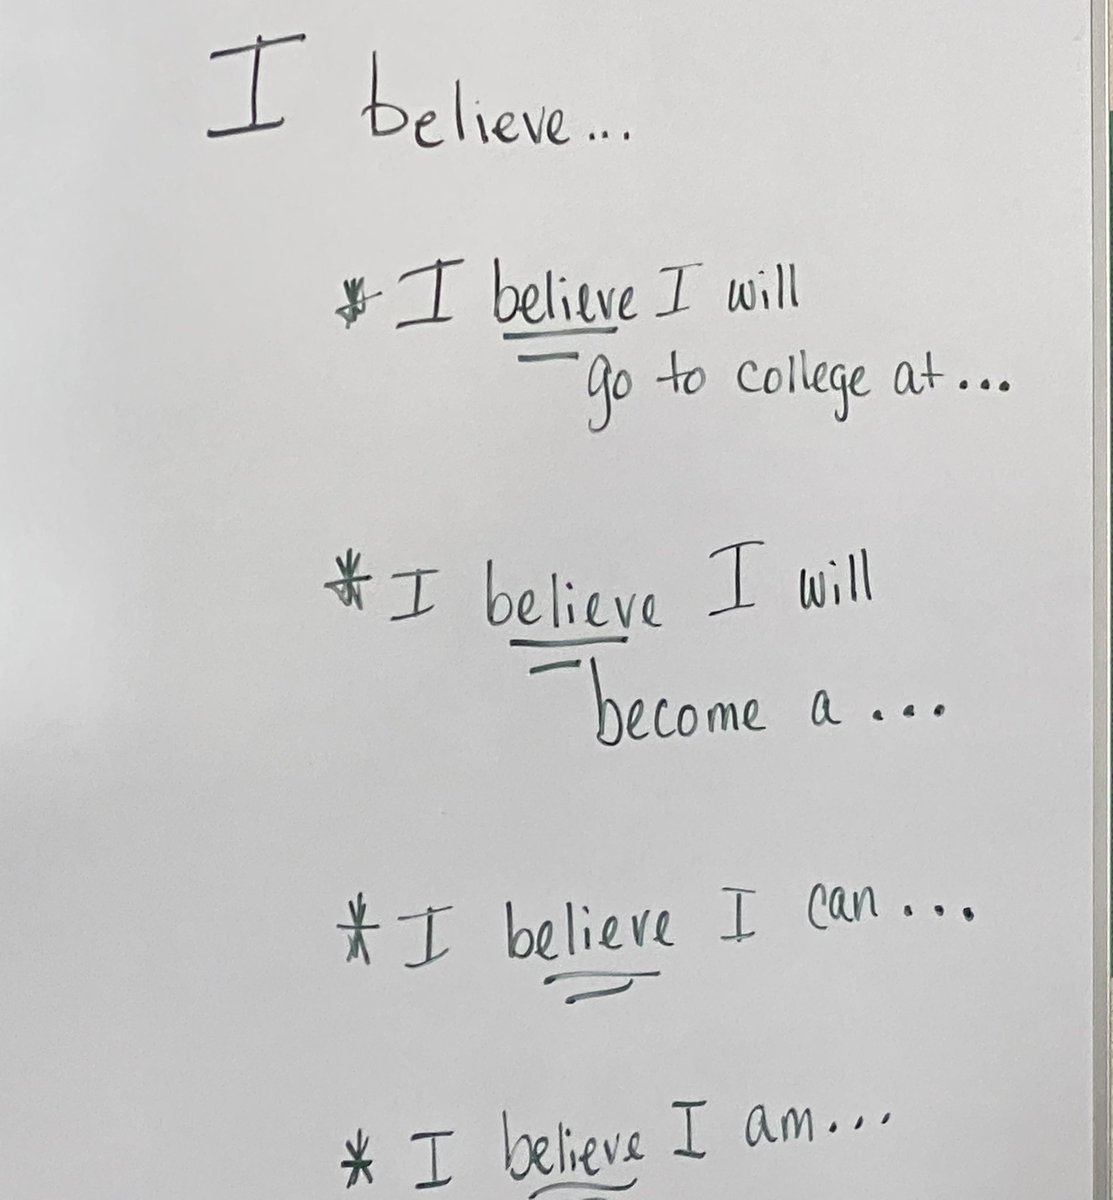 I believe...
* I believe I will
go to college at...
* I believe I will
become a ...
* I believe I can...
* I believe I am...